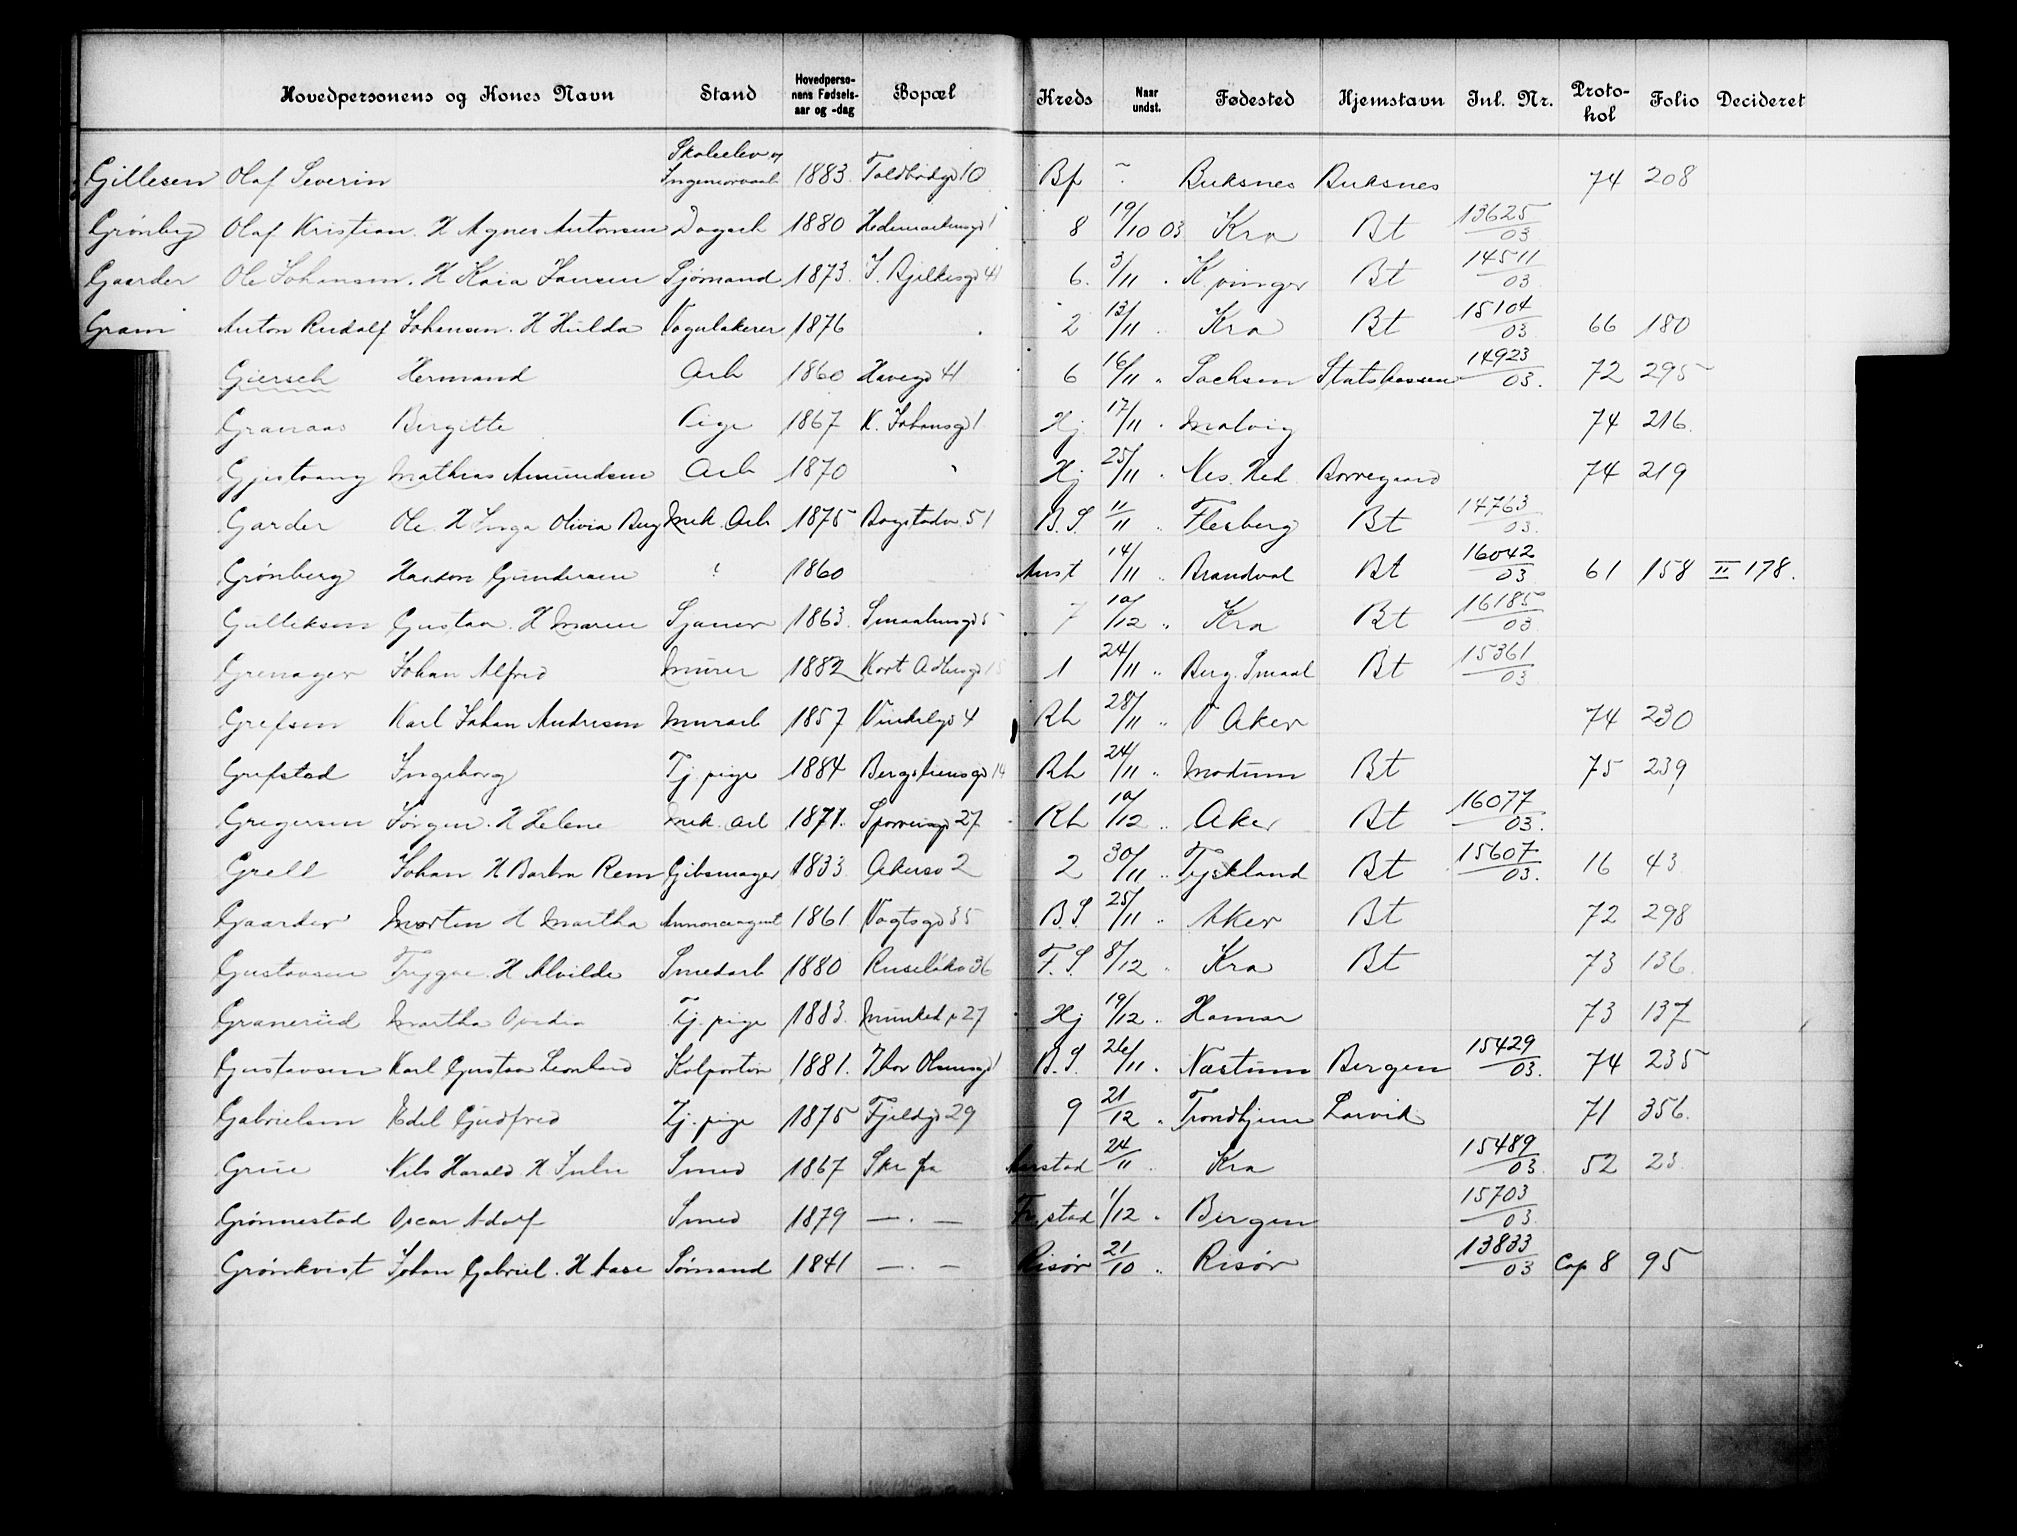 Hovedpersonens og Kones Navn Stand Hovedpersonens Fødselsaar og -dag Bopæl Kreds Naar undst. Fødested Hjemstavn Inl. Nr. Protokol Folio Decideret
Gillesen Olaf Severin Skoleelev 1883. Toldbodgd 10 Bf Buksnes Buksnes 74 208
Grønberg Olaf Kristian. H Agnes Antonsen Dagarb 1880 Hedemarkensgd 1 8 19/10 03 Kra Bt 13625/03
Gaarder Ole Johansen. H Kaia Jansen Sjømand 1873. J. Bjelkesgd 41 6. 3/11 " K.vinger Bt 14511/03
Gram Anton Rudolf Johansen. H Hulda Vognlakerer 1876 2 13/11 " Kra Bt 15104/03 66 180
Giersch Hermand Arb 1860 Havegd 41 6 16/11 " Sachsen Statskassen 14923/03. 72 295
Granaas Birgitte Pige 1867 K. Johansgd 1 Hj. 17/11 " Malvig 74 216.
Mathias Amundsen Arb 1870 " Hj 25/11 " Nes. Hed. Borregaard 74 219
Garder Ole. H Inga Olivia Berg Mek. Arb 1875 Bogstadv 51 B.S. 11/11 " Flesberg Bt 14763/03.
Grønberg Haakon Gundersen ? 1860 Anst 14/11 " Brandval Bt 16042/03 61 158 II 178.
Gulliksen Gustav. H Maren Sjauer 1863. Smaalensgd 5 7 10/12 " Kra Bt 16185/03
Grenager Johan Alfred Murer 1882 Kort Adlersgd 15 1 24/11 " Berg. Smaal Bt 15361/03
Grefsen Karl Johan Andresen Murarb 1857 4 Rh 28/11 " V Aker 74 230
Grefstad Ingeborg Tj. pige 1884 Bergsliensgd 14 Rh 24/11 " Modum Bt 75 239
Gregersen Jørgen. H Helene Mek. Arb 1871. Sporveisgd 27 Rh 10/12 " Aker Bt 16077/03.
Grell Johan H Barbra Rem Gibsmager 1833. Akersv 2 2 30/11 " Tyskland Bt 15607/03. 16 43.
Gaarder Morten H Martha Annonceagent 1861 Vogtsgd 35 B.S 25/11 " Aker Bt 72 298
Gustavsen Trygve. H Alvilde Smedarb 1880 Ruseløkv 36 F.S. 8/12 " Kra Bt 73 136.
Granerud Martha Ovedia Tj. pige 1883. Munked v 27 Hj 19/12 " Hamar 73 137
Gustavsen Karl Gustav Leonhard Kolportør 1881. Thor Olsensgd 1 B.S. 26/11 " Næstun Bergen 15429/03. 74 235
Gabrielsen Edel Gudfred Tj. pige 1875 Fjeldgd 29 9 21/12 " Trondhjem Larvik 71 356.
Grue Nils Harald H Julie Smed 1867 Skr fra Aarstad 24/11 " Kra 15489/03. 52 23.
Grønnestad Oscar Adolf Smed 1879 — . — Fr.stad 1/12 " Bergen 15703/03.
Grønkvist Johan Gabriel. H Aase Sømand 1841 — . — Risør 21/10 " Risør 13833/03 Cop 8 95